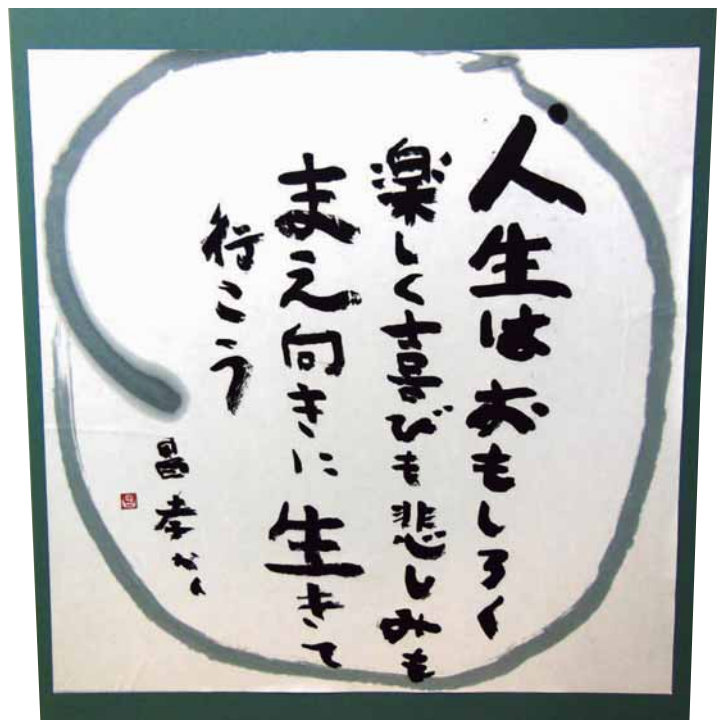 人生はおもしろく
楽しく喜びも悲しみも
まえ向きに生きて
行こう
昌孝かく
昌